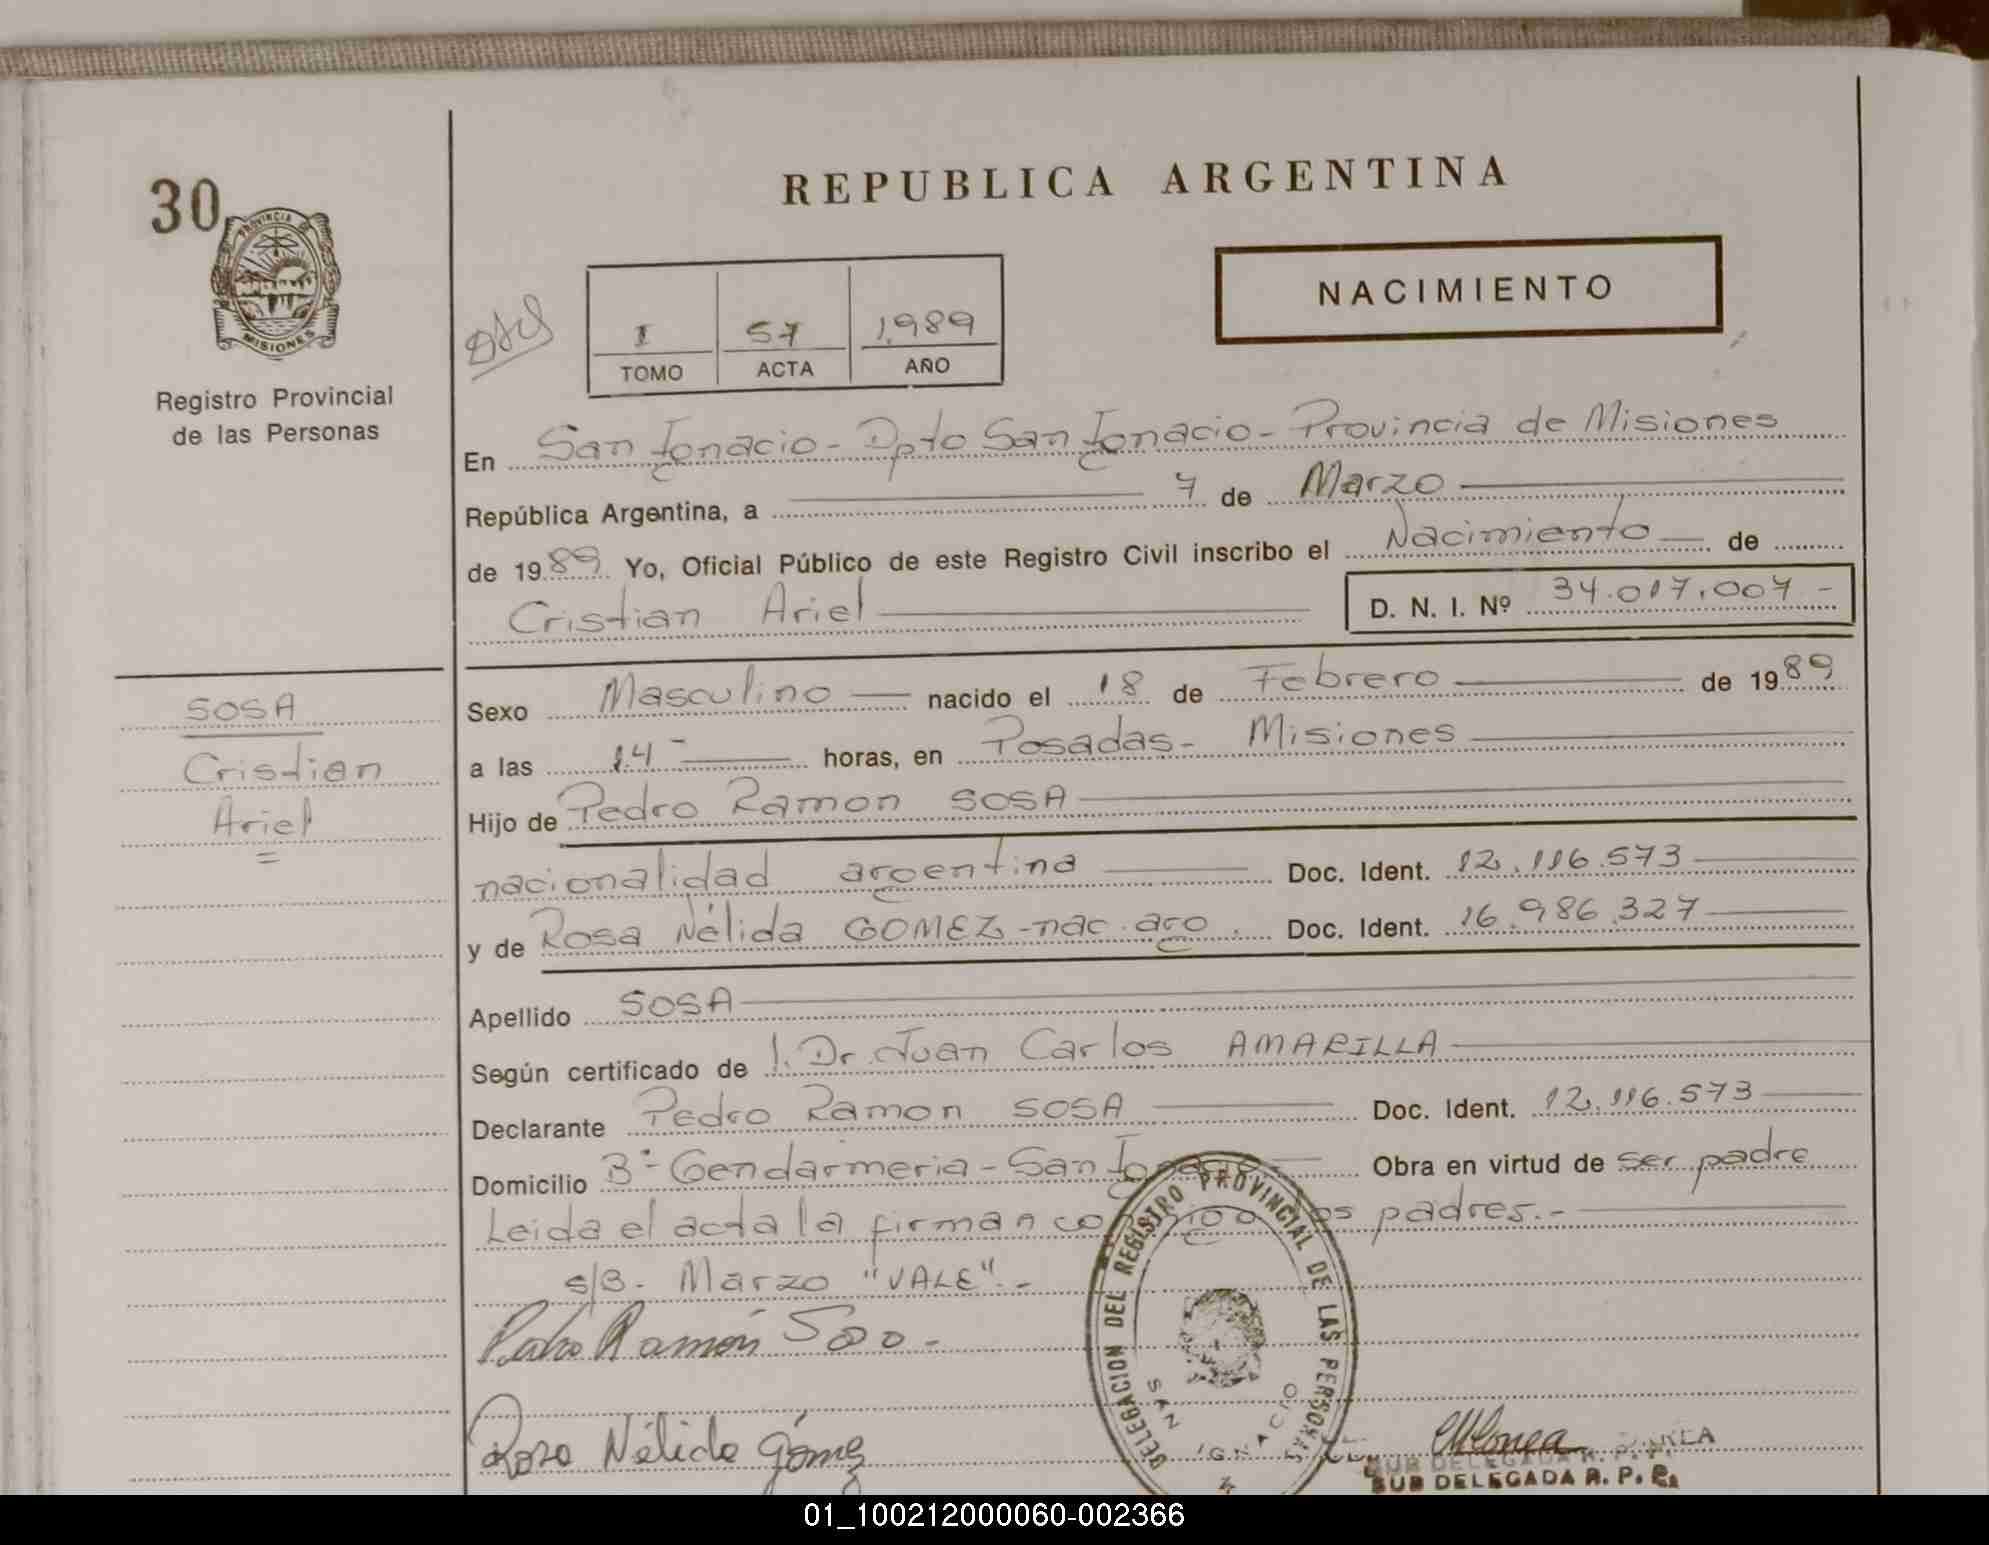 30
PROVINCIA DE
MISIONES
Registro Provincial
de las Personas
REPUBLICA ARGENTINA
NACIMIENTO
I 57 1.989
TOMO ACTA AÑO
En San Ignacio - Dpto San Ignacio - Provincia de Misiones
República Argentina, a 7 de Marzo
de 1989 Yo, Oficial Público de este Registro Civil inscribo el Nacimiento de
Cristian Ariel D. N. I. Nº 34.017.007 -
SOSA
Cristian
Ariel
Sexo Masculino nacido el 18 de Febrero de 1989
a las 14 - horas, en Posadas - Misiones
Hijo de Pedro Ramon SOSA
nacionalidad argentina Doc. Ident. 12.116.573
y de Rosa Nélida GOMEZ - nac. arg. Doc. Ident. 16.986.327
Apellido SOSA
Según certificado de Dr. Juan Carlos AMARILLA
Declarante Pedro Ramon SOSA Doc. Ident. 12.116.573
Domicilio Bº Gendarmeria - San Ignacio - Obra en virtud de ser padre
Leida el acta la firman conmigo los padres.-
s/B. Marzo "VALE".-
Pedro Ramón Sosa -
Rosa Nélida Gómez
DELEGACION DEL REGISTRO PROVINCIAL DE LAS PERSONAS
SAN IGNACIO
SUB DELEGADA R. P. P.
SUB DELEGADA R. P. P.
01_100212000060-002366